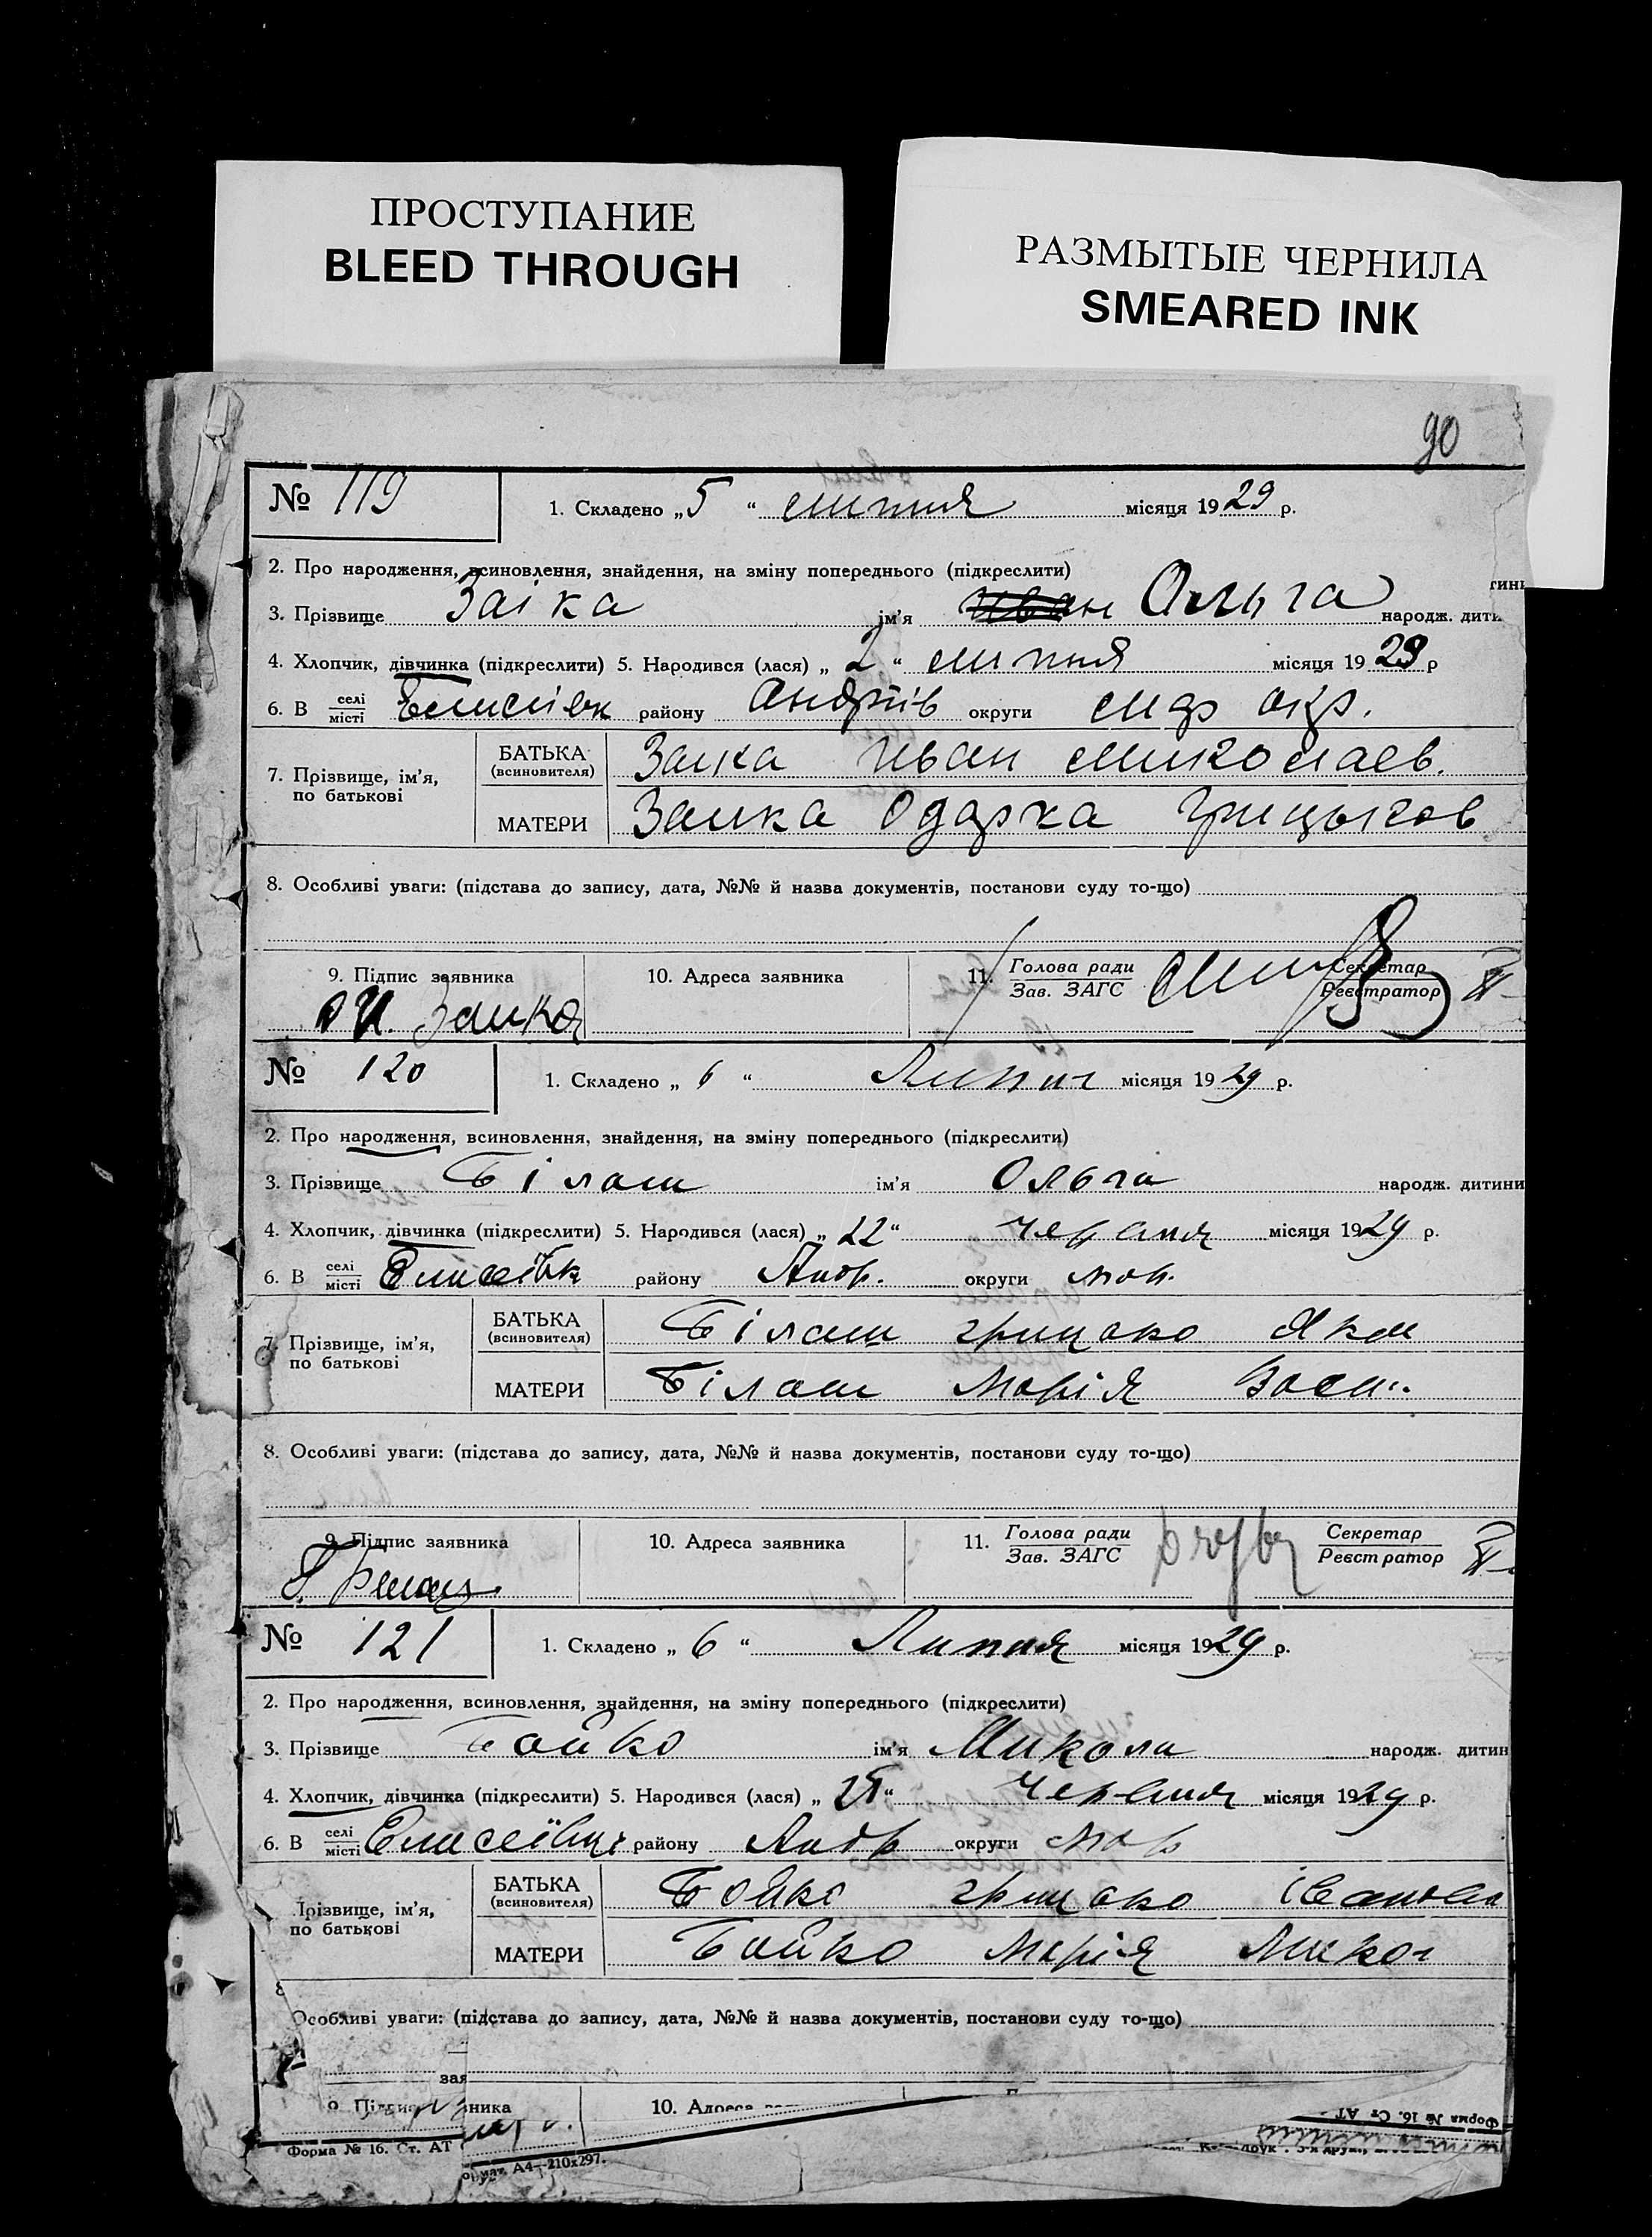 ПРОСТУПАНИЕ
BLEED THROUGH
РАЗМЫТЫЕ ЧЕРНИЛА
SMEARED INK
90
№ 119 1. Складено „ 5 “ липня місяця 1929 р.
2. Про народження, всиновлення, знайдення, на зміну попереднього (підкреслити)
тини
3. Прізвище Заіка ім’я Иван Ольга народж. дити
4. Хлопчик, дівчинка (підкреслити) 5. Народився (лася) „ 2 “ липня місяця 1929 р
6. В селі/місті Елисеївк району Андріїв округи мар окр.
7. Прізвище, ім’я, по батькові
БАТЬКА (всиновителя) Заика Иван Миколаев.
МАТЕРИ Заика Одарка Грицьков
8. Особливі уваги: (підстава до запису, дата, №№ й назва документів, постанови суду то-що)
9. Підпис заявника 10. Адреса заявника 11. Голова ради/Зав. ЗАГС Секретар/Реєстратор
И. Заика
№ 120 1. Складено „ 6 “ Липня місяця 1929 р.
2. Про народження, всиновлення, знайдення, на зміну попереднього (підкреслити)
3. Прізвище Білаш ім’я Ольга народж. дитини
4. Хлопчик, дівчинка (підкреслити) 5. Народився (лася) „ 22 “ червня місяця 1929 р.
6. В селі/місті Елисеївк району Андр. округи мар.
7. Прізвище, ім’я, по батькові
БАТЬКА (всиновителя) Білаш Грицько Яков
МАТЕРИ Білаш Марія Васи.
8. Особливі уваги: (підстава до запису, дата, №№ й назва документів, постанови суду то-що)
9. Підпис заявника 10. Адреса заявника 11. Голова ради/Зав. ЗАГС Секретар/Реєстратор
№ 121 1. Складено „ 6 “ Липня місяця 1929 р.
2. Про народження, всиновлення, знайдення, на зміну попереднього (підкреслити)
3. Прізвище Бойко ім’я Микола народж. дитин
4. Хлопчик, дівчинка (підкреслити) 5. Народився (лася) „ “ Червня місяця 1929 р.
6. В селі/місті Елисеївці району Андр округи мар
Прізвище, ім’я, по батькові
БАТЬКА (всиновителя) Бойко Грицько Іванов
МАТЕРИ Бойко Марія Микол
8
Особливі уваги: (підстава до запису, дата, №№ й назва документів, постанови суду то-що)
зая
9. Підпис ника 10. Адреса
Форма № 16. Ст. АТ
Форма № 16. Ст. АТ
А4—210х297.